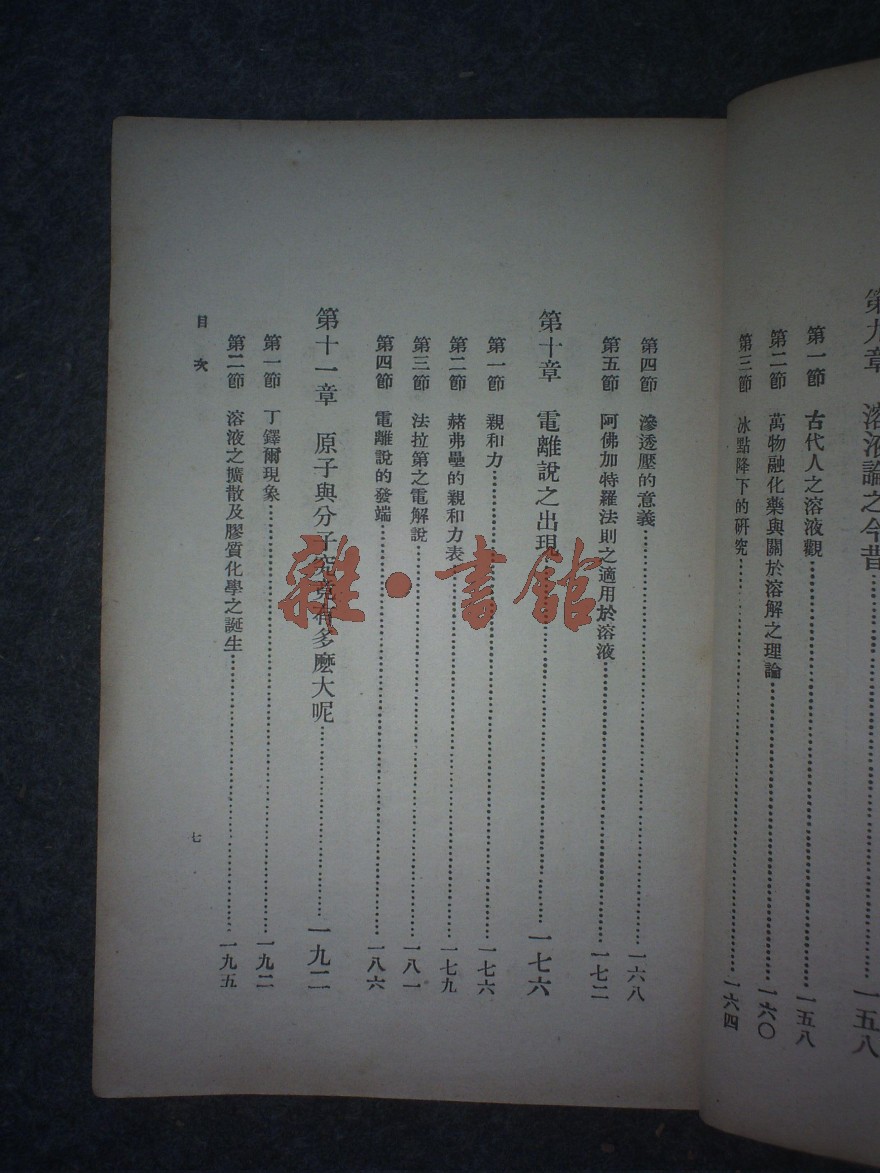 第九章 溶液論之今昔……一五八
第一節 古代人之溶液觀……一五八
第二節 萬物融化藥與關於溶解之理論……一六〇
第三節 冰點降下的研究……一六四
第四節 滲透壓的意義……一六八
第五節 阿佛加特羅法則之適用於溶液……一七二
第十章 電離說之出現……一七六
第一節 親和力……一七六
第二節 赭弗壘的親和力表……一七九
第三節 法拉第之電解說……一八一
第四節 電離說的發端……一八六
第十一章 原子與分子究竟有多麼大呢……一九二
第一節 丁鐸爾現象……一九二
第二節 溶液之擴散及膠質化學之誕生……一九五
目次
七
雜·書館